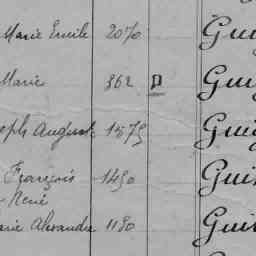 Marie Emile 2070 Gui
Marie 862 D Gui
eph August 1575 Gui
François 1450 Gui
René
arie Alexandre 1130 Gui